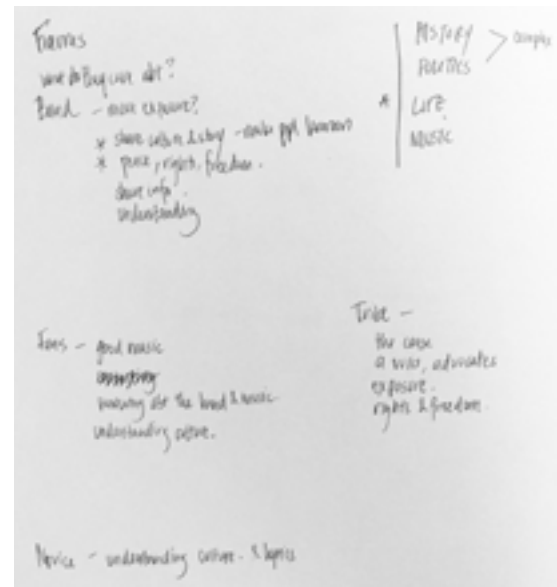 what do they care abt?
Band - more exposure?
* share culture & story - make ppl
* peace, rights, freedom.
share info.
understanding
HISTORY
POLITICS > complex
* LIFE
MUSIC
Fans - good music
knowing abt the band & music
understanding culture.
Tribe -
the cause
a voice, advocates
exposure.
rights & freedom.
Novice - understanding culture. & lyrics